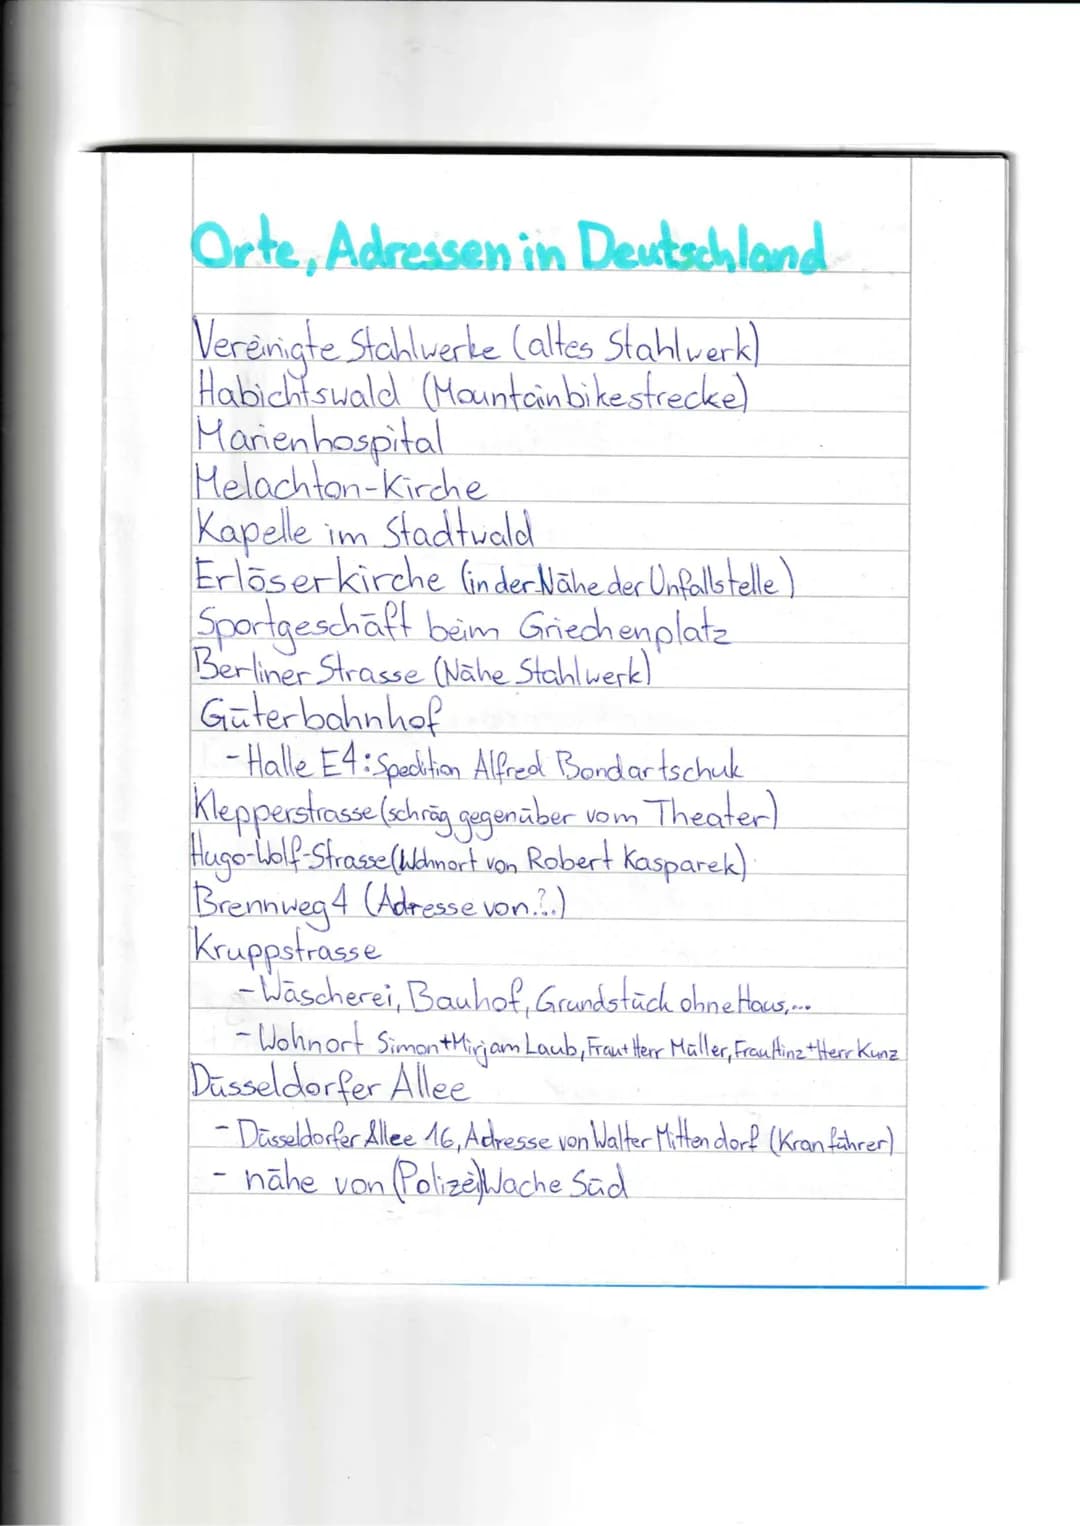 Orte, Adressen in Deutschland
Vereinigte Stahlwerke (altes Stahlwerk)
Habichtswald (Mountainbikestrecke)
Marienhospital
Melachton-Kirche
Kapelle im Stadtwald
Erlöserkirche (in der Nähe der Unfallstelle)
Sportgeschäft beim Griechenplatz
Berliner Strasse (Nähe Stahlwerk)
Güterbahnhof
- Halle E4: Spedition Alfred Bondartschuk
Klepperstrasse (schräg gegenüber vom Theater)
Hugo-Wolf-Strasse (Wohnort von Robert Kasparek)
Brennweg 4 (Adresse von.?.)
Kruppstrasse
- Wäscherei, Bauhof, Grundstück ohne Haus,...
- Wohnort Simon + Mirjam Laub, Frau + Herr Müller, Frau Hinz + Herr Kunz
Düsseldorfer Allee
- Düsseldorfer Allee 16, Adresse von Walter Mittendorf (Kranführer)
- nähe von (Polizei)Wache Süd